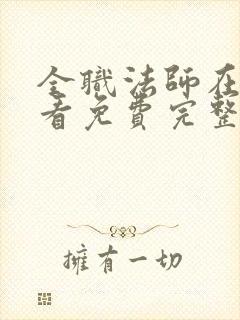 全職法師在
看免費完整
擁有一切